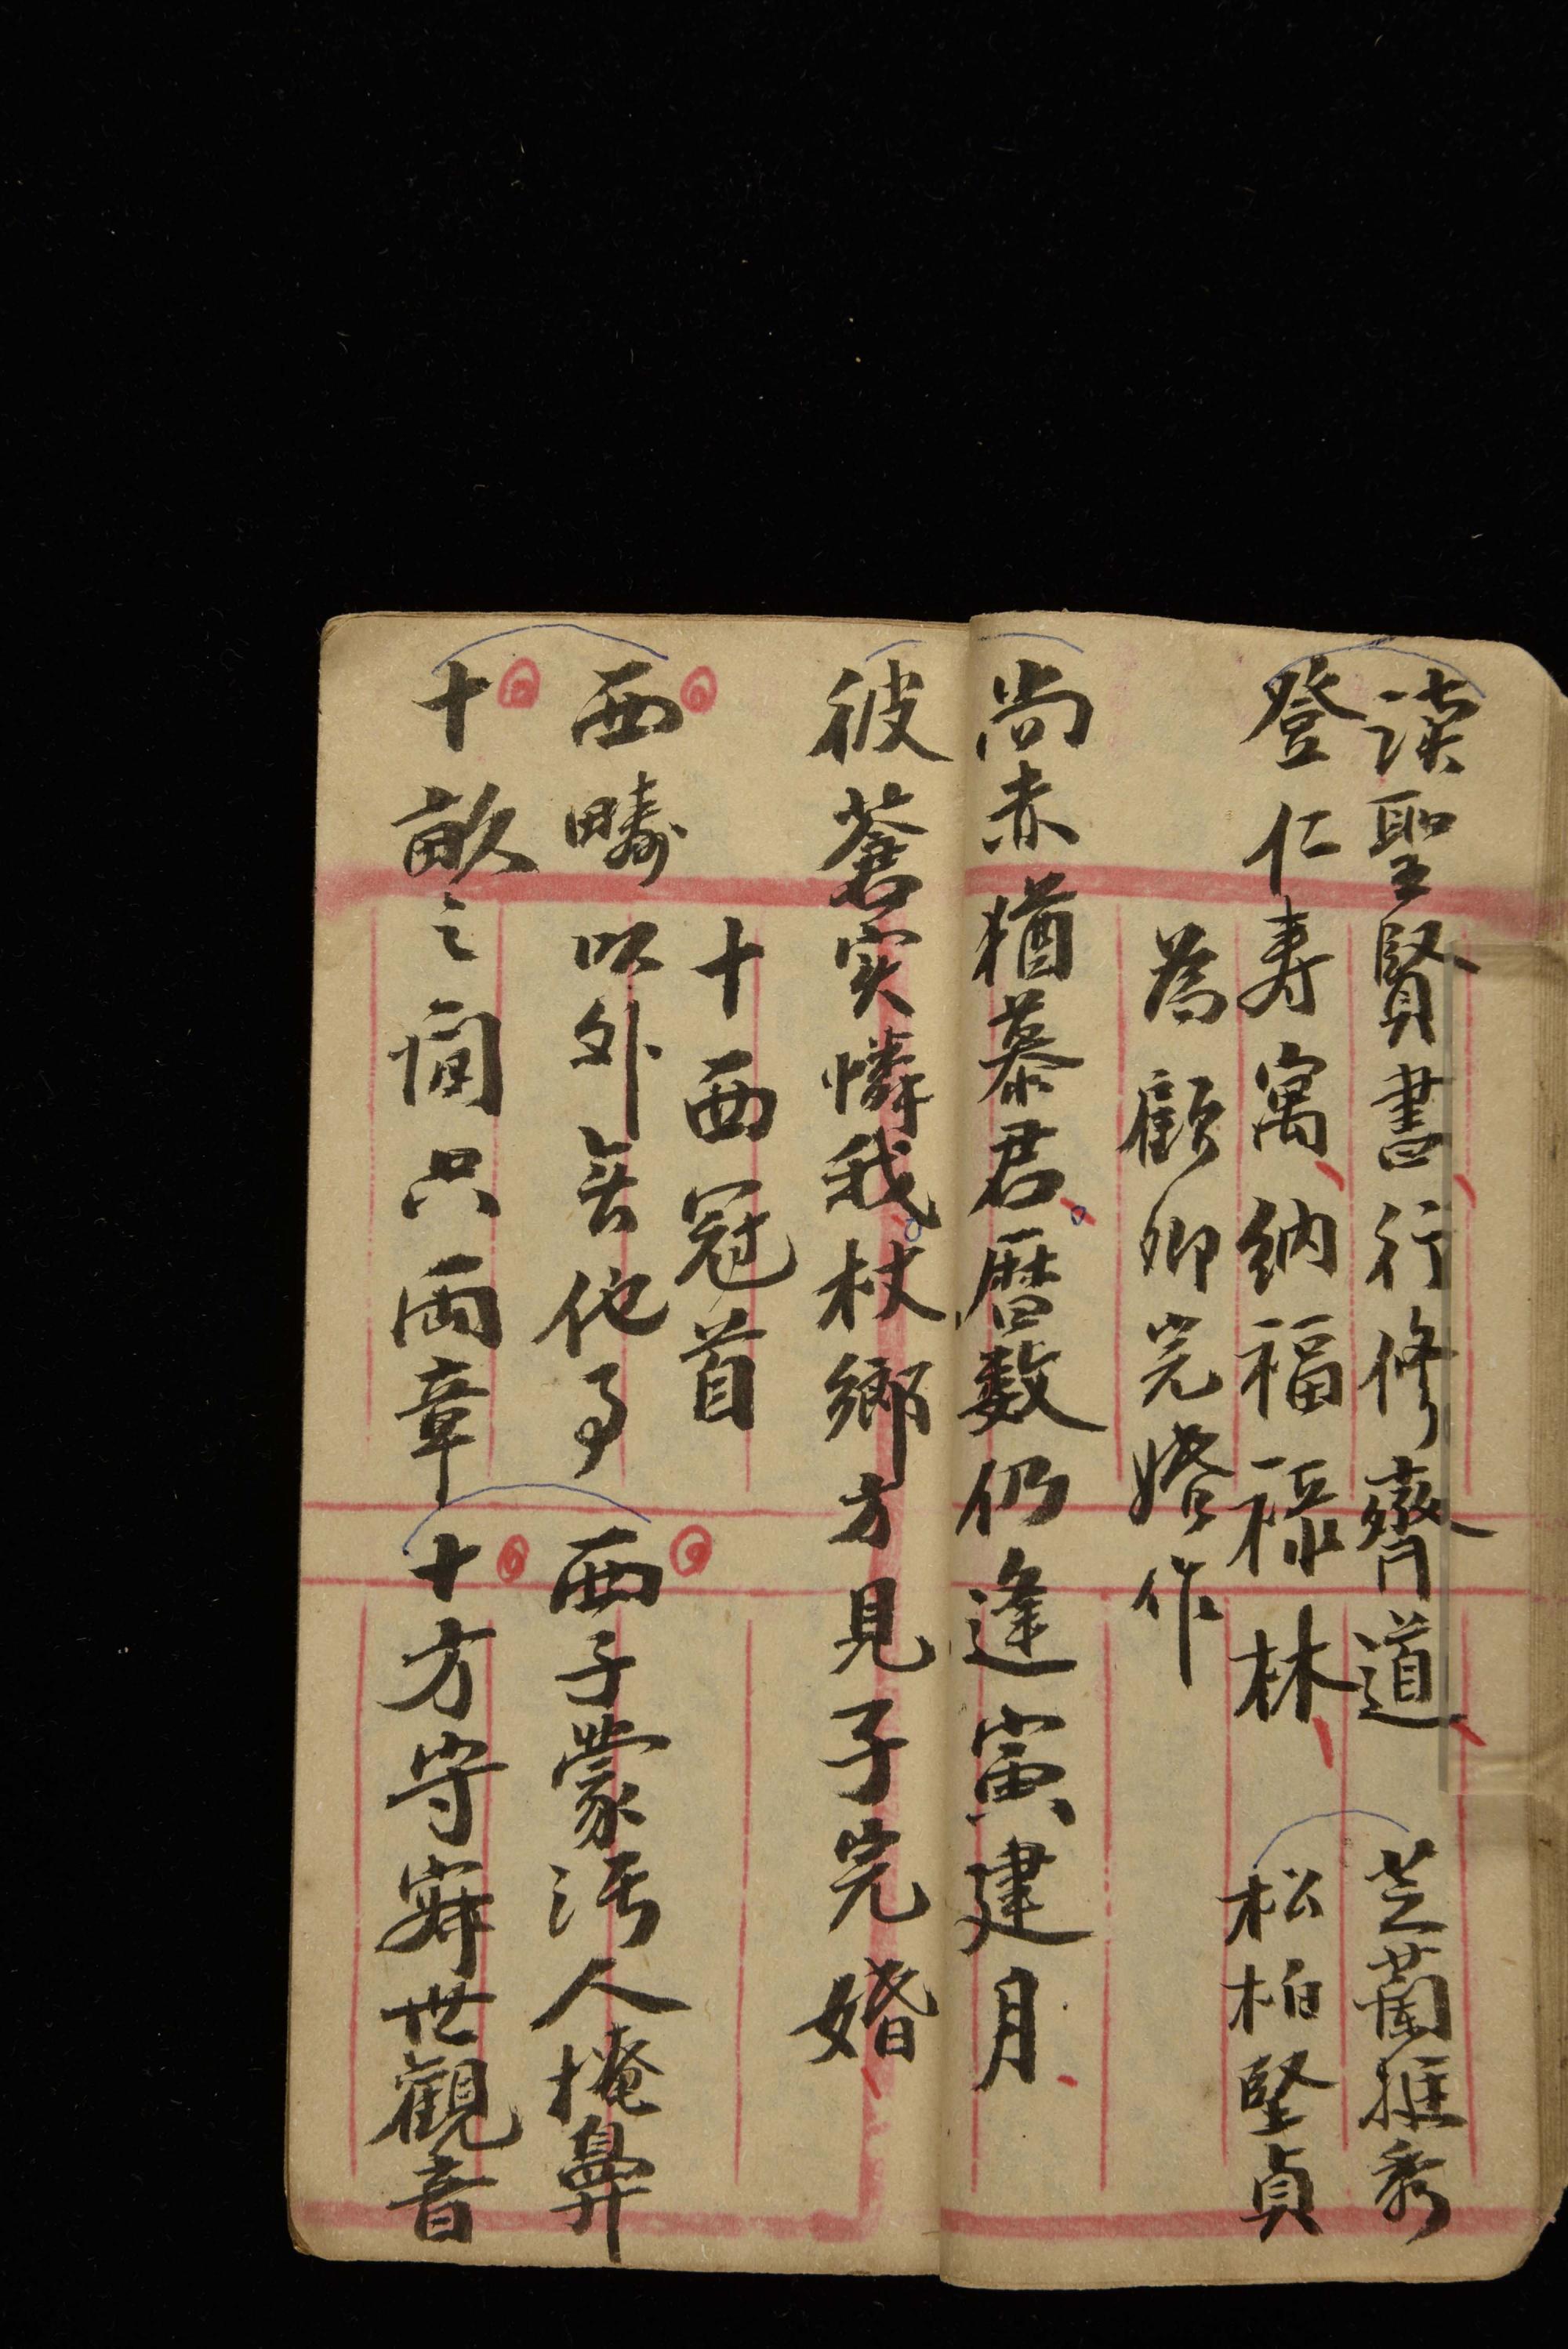 读聖賢書行修齊道　芝蘭挺秀
登仁寿寓納福祿林　松柏堅貞
為顧卿完婚作
尚未猶慕君曆数仍逢寅建月
彼蒼实憐我杖鄉方見子完婚
十西冠首
西疇以外無他事　西子蒙污人掩鼻
十畝之间只両章　十方守寂世觀音